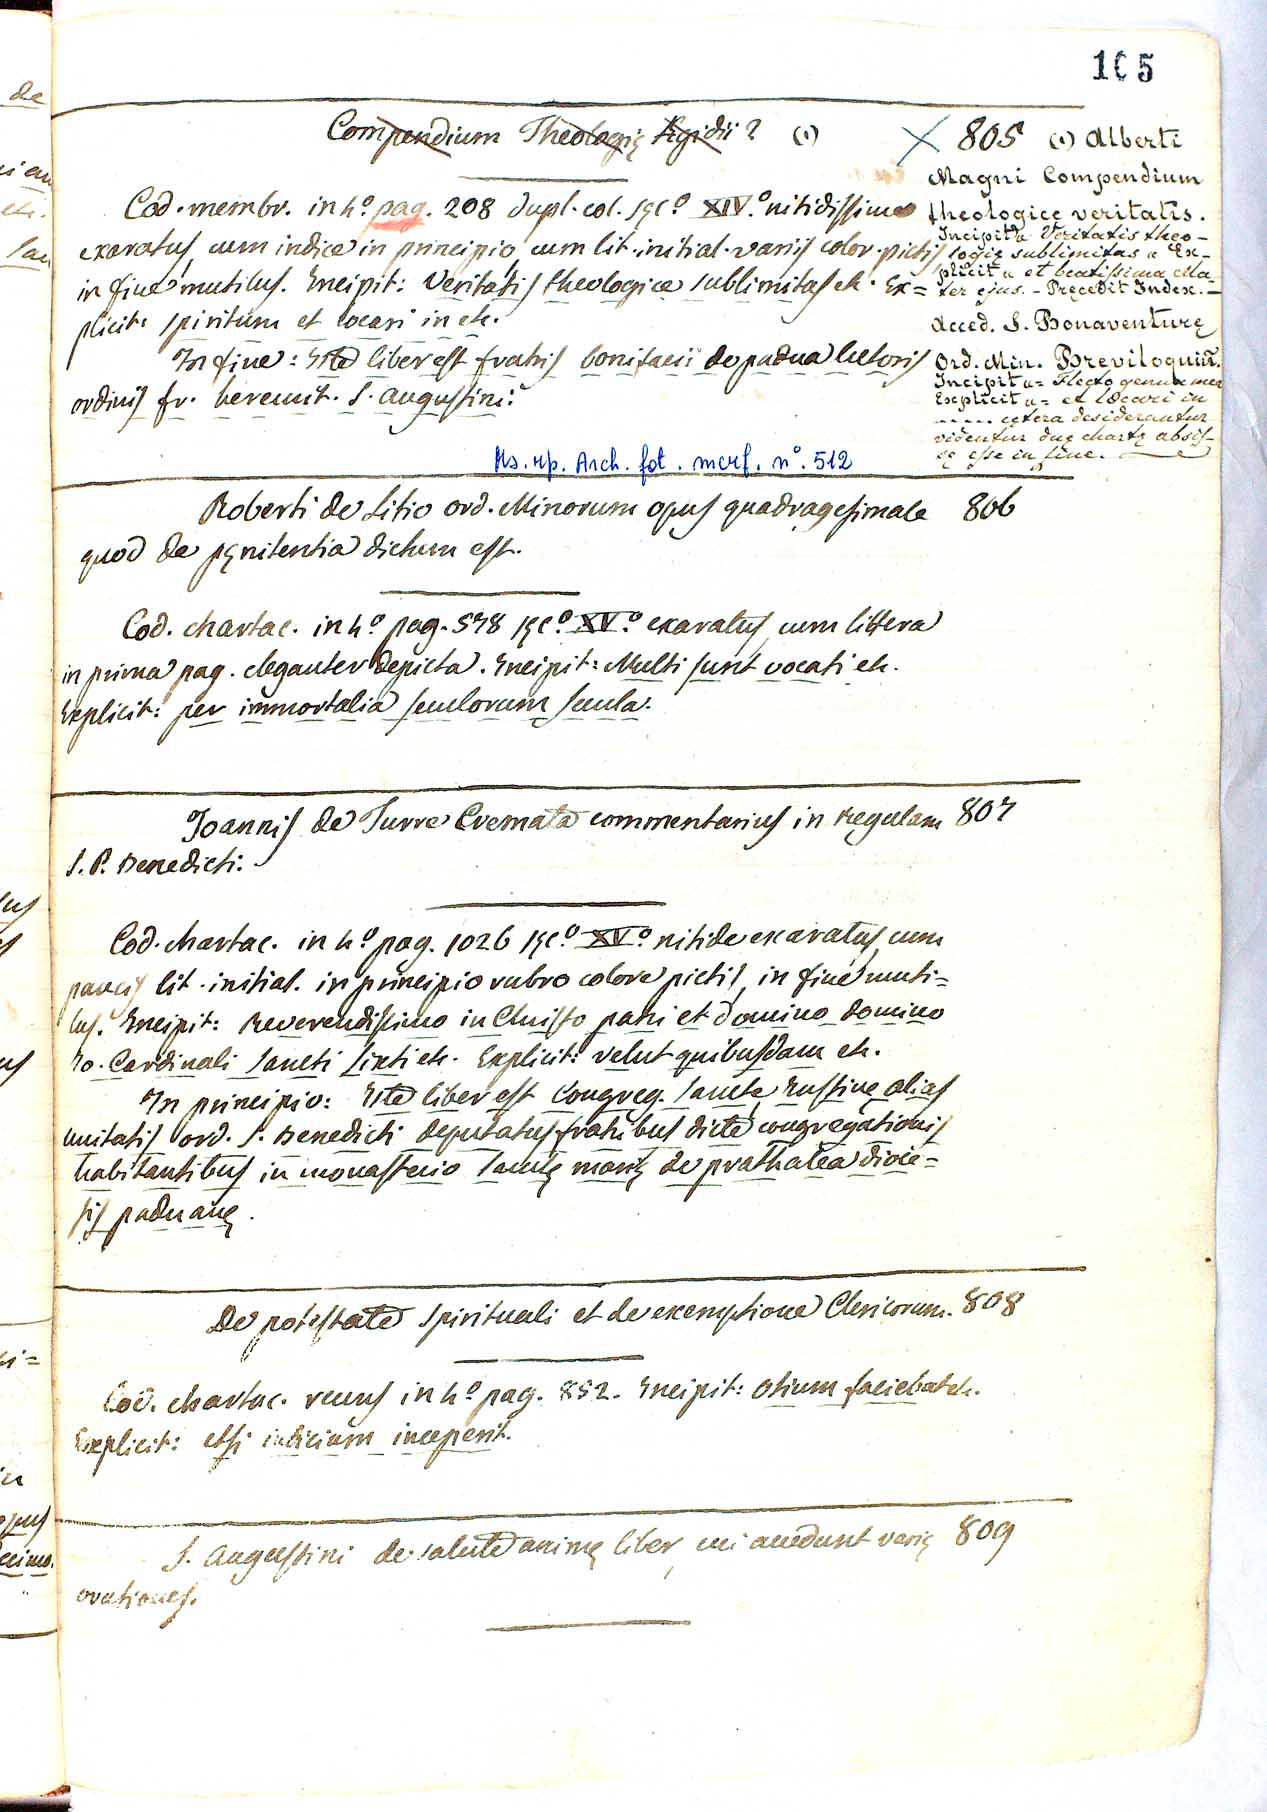 105
Compendium Theologię Egidii? (1)
805 (1) Alberti
Magni Compendium
theologice veritatis.
Incipit „ Veritatis theo-
logię sublimitas „ Ex-
plicit „ et beatissima Ma-
ter ejus. - Pręcedit Index. -
Acced. S. Bonaventurę
Ord. Min. Breviloquiũ.
Incipit „ = Flecto genua mea
Explicit „ = et locari in
...... cętera desiderantur
videntur duę chartę absis-
sę esse in fine.
Cod. membr. in 4º pag. 208 dupl. col. sęc.º XIV.º nitidissime
exaratus, cum indice in principio, cum lit. initial. variis color. pictis
in fine mutilus. Incipit: Veritatis theologice sublimitas etc. Ex=
plicit: spiritum et locari in etc.
In fine: Iste liber est fratris bonifacii de padua lectoris
ordinis fr. heremit. S. Augustini.
Ms. rp. Arch. fot. mcrf. n.º 512
Roberti de Litio ord. Minorum opus quadragesimale 806
quod de pęnitentia dictum est.
Cod. chartac. in 4º pag. 578 sęc.º XV.º exaratus, cum littera
in prima pag. eleganter depicta. Incipit: Multi sunt vocati etc.
Explicit: per immortalia seculorum secula.
Joannis de Turre Cremata commentarius in Regulam 807
S. P. Benedicti.
Cod. chartac. in 4º pag. 1026 sęc.º XV.º nitide exaratus, cum
paucis lit. initial. in principio rubro colore pictis, in fine muti=
lus. Incipit: Reverendissimo in Christo patri et domino domino
Jo. Cardinali Sancti Sixti etc. Explicit: velut quibusdam etc.
In principio: Iste liber est Congreg. Sancte Iustinę alias
unitatis ord. S. Benedicti deputatus fratribus dicte congregationis
habitantibus in monasterio Sanctę marię de prathalea dioce=
sis paduanę.
De potestate spirituali et de exemptione Clericorum. 808
Cod. chartac. recens in 4º pag. 852. Incipit: Otium faciebat etc.
Explicit: etsi indicium inceperit.
S. Augustini de salute animę liber, cui accedunt varię 809
orationes.